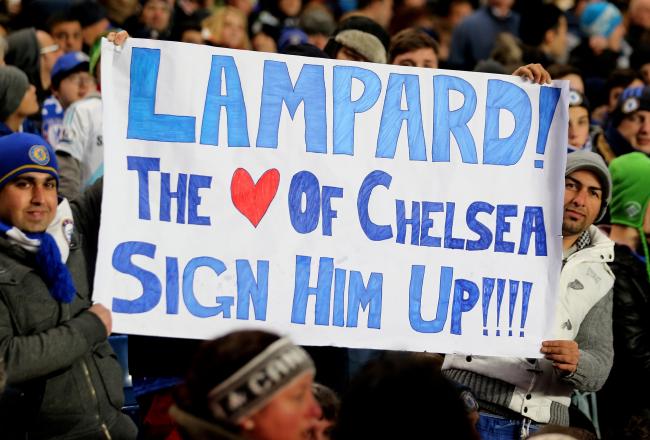 LAMPARD!
THE ♥ OF CHELSEA
SIGN HIM UP!!!!